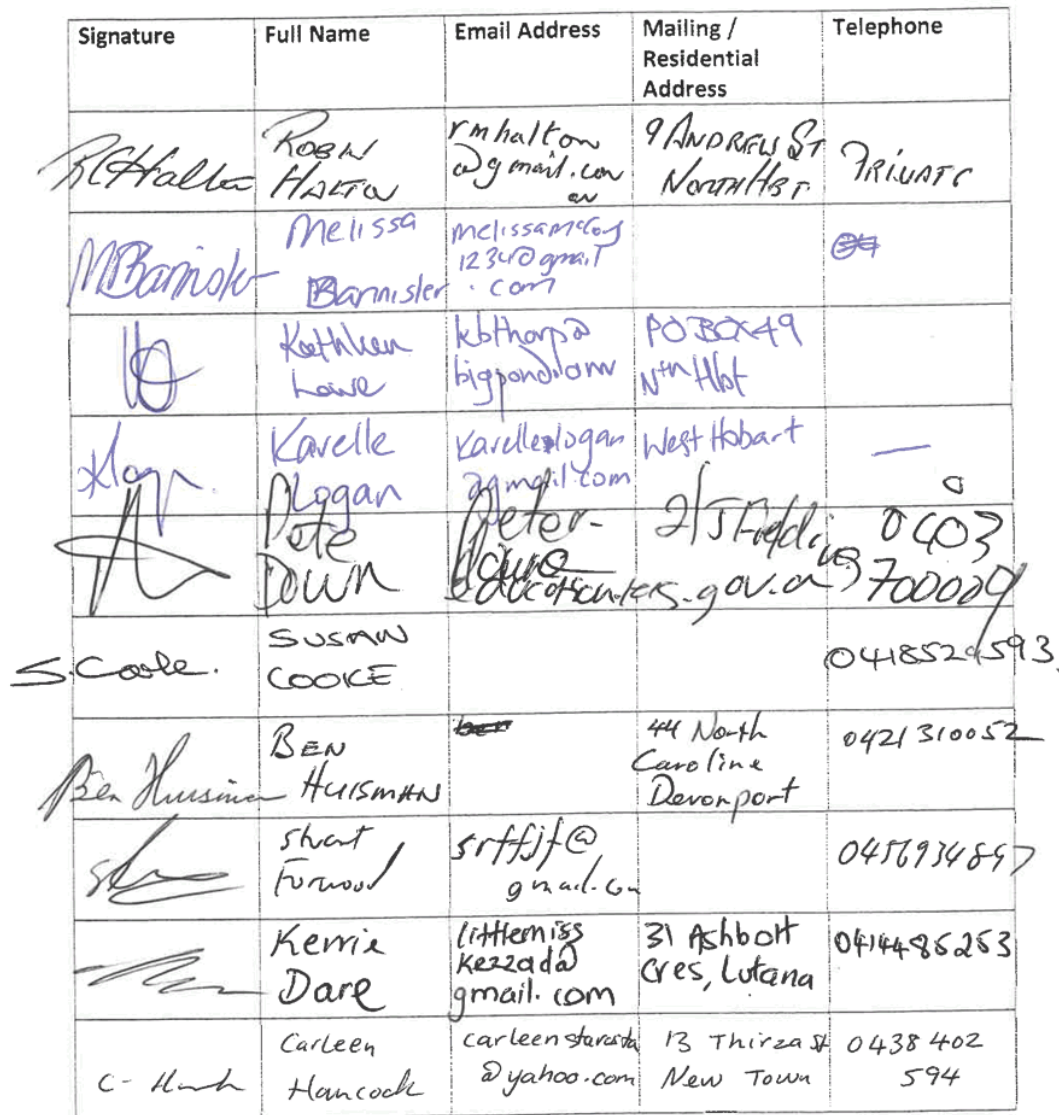 Signature Full Name Email Address Mailing / Residential Address Telephone
RCHalton ROBIN HALTON rmhalton @gmail.com 9 ANDREW ST NORTH HBT PRIVATE
MBannister Melissa Bannister melissamccoy 1234@gmail .com
Kathleen Lowe kbthorp@ bigpond.com PO BOX 49 Nth Hbt
KLogan Karelle Logan karellelogan @gmail.com West Hobart —
Pete Down Peter. 2/5 0403 700009
S.Cooke. SUSAN COOKE
Ben Huisman BEN HUISMAN 44 North Caroline Devonport 0421310052
Stuart srffjf@ gmail.com
Kerrie Dare littlemiss kezzada@ gmail.com 31 Ashbolt Cres, Lutana 0414486253
Carleen Hancock carleenstarosta @yahoo.com 13 Thirza st New Town 0438 402 594